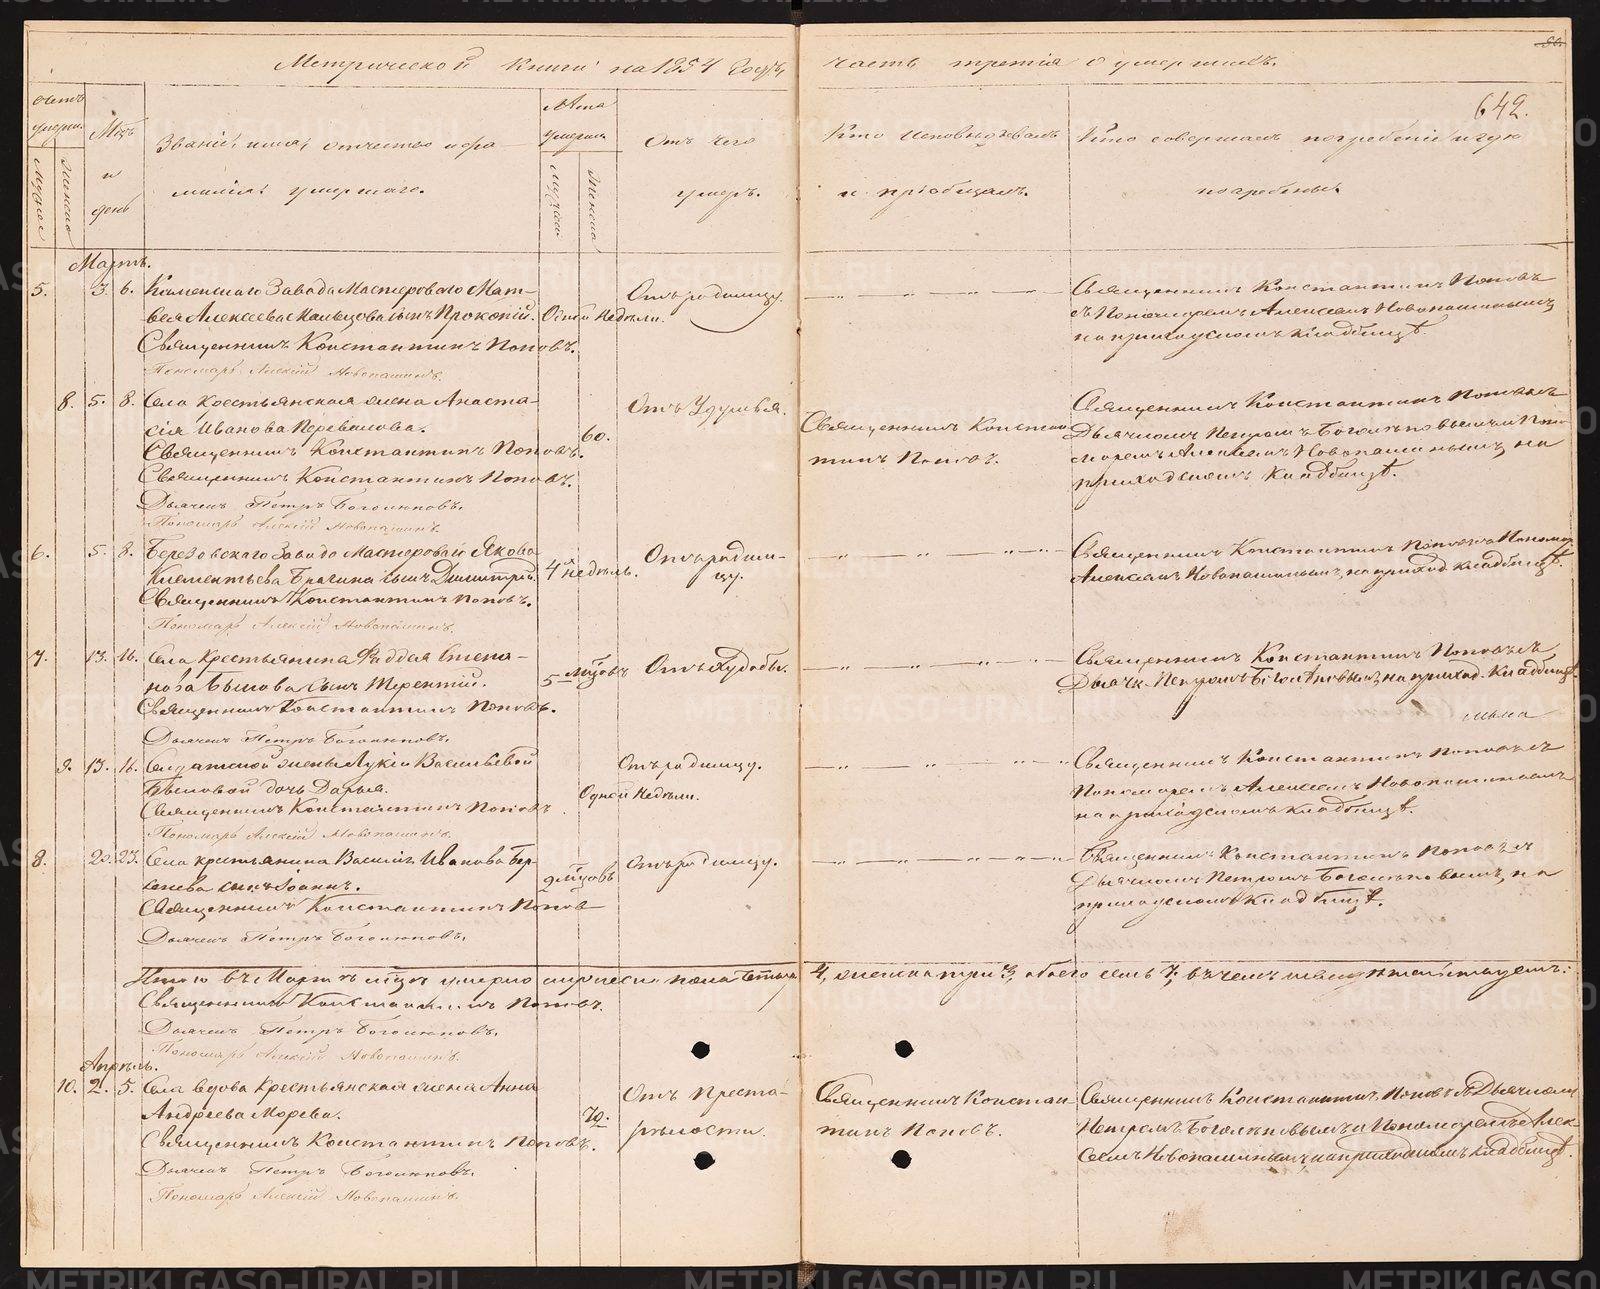 Метрической книги на 1854 годъ,
часть третія о умершихъ.
642.
Счетъ умерш.
Мужеска
Женска
Мѣць и день
Званіе, имя, отчество и фамилія умершаго.
Лѣта умершаго
Мужеска
Женска
Отъ чего умеръ.
Кто исповѣдывалъ и пріобщалъ.
Кто совершалъ погребеніе и гдѣ погребены.
Мартъ.
5. 3. 6. Каменскаго Завода Мастероваго Мат-
вея Алексеева Мальцова сынъ Прокопій. Одной Недѣли. Отъ родимцу.
Священникъ Константинъ Поповъ.
Пономарь Алексій Новопашинъ.
Священникъ Константинъ Поповъ
съ Пономаремъ Алексеемъ Новопашинымъ,
на приходскомъ кладбищѣ.
8. 5. 8. Села Крестьянская жена Анаста-
сія Иванова Перевалова. 60. Отъ Удушья.
Священникъ Константинъ Поповъ.
Священникъ Константинъ Поповъ.
Дьячекъ Петръ Боголюповъ.
Пономарь Алексій Новопашинъ.
Священникъ Констан-
тинъ Поповъ.
Священникъ Константинъ Поповъ съ
Дьячкомъ Петромъ Боголѣповымъ и Поно-
маремъ Алексеемъ Новопашинымъ, на
приходскомъ Кладбищѣ.
6. 5. 8. Березовскаго Завода Мастероваго Якова
Клементьева Брагина сынъ Димитрій. 4 недѣль. Отъ родим-
цу.
Священникъ Константинъ Поповъ.
Пономарь Алексій Новопашинъ.
Священникъ Константинъ Поповъ съ Пономар.
Алексеемъ Новопашинымъ, на приход. кладбищѣ.
7. 13. 16. Села Крестьянина Фаддея Степа-
нова Бымова сынъ Терентій. 5 мѣцовъ Отъ Худобы.
Священникъ Константинъ Поповъ.
Дьячекъ Петръ Боголюповъ.
Священникъ Константинъ Поповъ съ
Дьячк. Петромъ Боголѣповымъ, на приход. Кладбищѣ.
9. 13. 16. Солдатской жены Лукіи Васильевой
Бымовой дочь Дарья. Одной Недѣли. Отъ родимцу.
Священникъ Константинъ Поповъ
Пономарь Алексій Новопашинъ.
Священникъ Константинъ Поповъ съ
Пономаремъ Алексеемъ Новопашинымъ
на приходскомъ кладбищѣ.
8. 20. 23. Села крестьянина Василія Иванова Бер-
сенева сынъ Іоаннъ. 9 мѣцовъ Отъ родимцу.
Священникъ Константинъ Поповъ
Дьячекъ Петръ Боголюповъ.
Священникъ Константинъ Поповъ съ
Дьячкомъ Петромъ Боголѣповымъ, на
приходскомъ кладбищѣ.
Итого въ Мартѣ мѣцѣ умерло мужеска пола четыре 4, женска три 3, обоего семь 7, въ чемъ и свидѣтельствуемъ:
Священникъ Константинъ Поповъ.
Дьячекъ Петръ Боголюповъ.
Пономарь Алексій Новопашинъ.
Апрѣль.
10. 2. 5. Села вдова Крестьянская жена Анна
Андреева Морева. 70. Отъ Преста-
рѣлости.
Священникъ Константинъ Поповъ.
Дьячекъ Петръ Боголюповъ.
Пономарь Алексій Новопашинъ.
Священникъ Констан-
тинъ Поповъ.
Священникъ Константинъ Поповъ съ Дьячкомъ
Петромъ Боголѣповымъ и Пономаремъ Алек-
сеемъ Новопашинымъ, на приходскомъ кладбищѣ.
METRIKI.GASO-URAL.RU